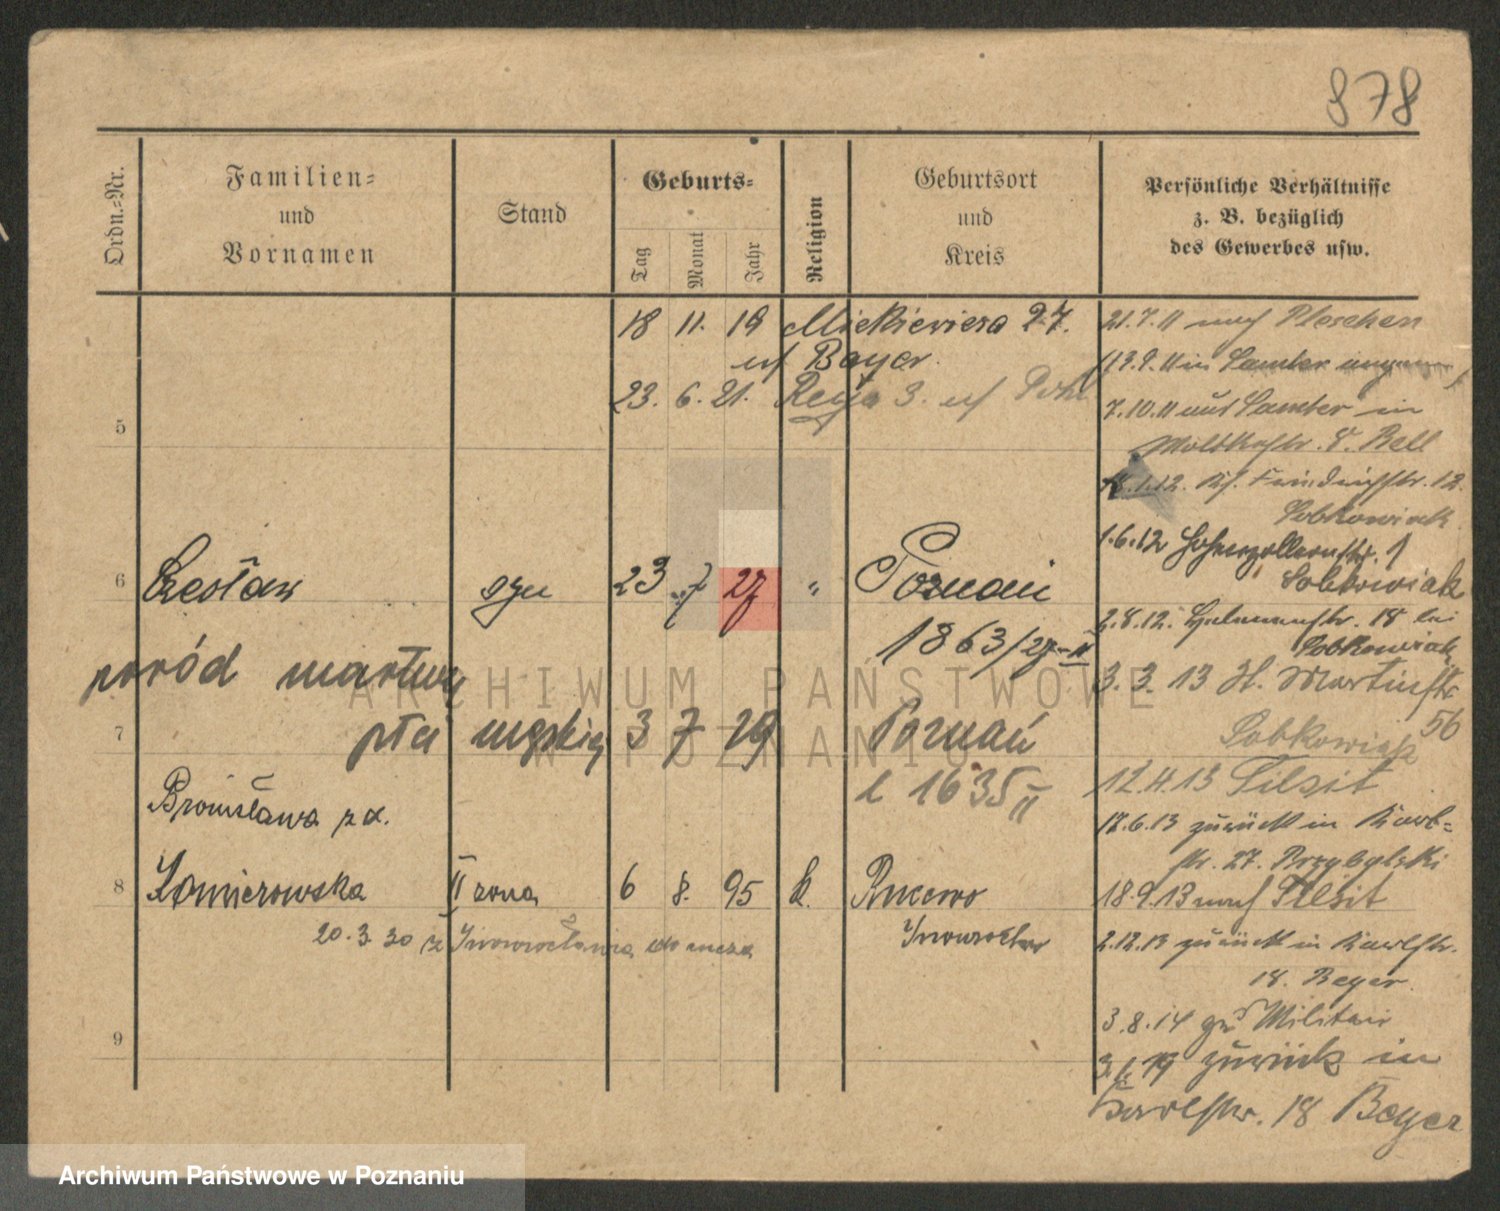 878
Ordn.-Nr.
Familien-
und
Vornamen
Stand
Geburts-
Tag
Monat
Jahr
Religion
Geburtsort
und
Kreis
Persönliche Verhältnisse
z. B. bezüglich
des Gewerbes usw.
18 11. 19 Mickiewicza 27.
b/ Beyer.
23. 6. 21. Reja 3. b/ Pohl
5
6 Czesław syn 23 7 27 " Poznań
1863/27 II
poród martwy
7 płci męskiej 3 7 29 Poznań
L 1635 II
Bronisława z d.
8 Żomierowska II żona 6 8. 95 k. Rucewo
20.3.30 z Inowrocławia do męża
Inowrocław
9
21.7.11 nach Pleschen
19.9.11 in Samter
7.10.11 aus Samter in
Moltkestr. 8. Bell
1.12. Kf. Friedrichstr. 12.
Sobkowiak
1.6.12 Hohenzollernstr. 1
Sobkowiak
2.8.12. str. 18 bei
Sobkowiak
3.3.13 St. Martinstr.
56
Sobkowiak
12.4.13 Tilsit
17.6.13 zurück in Karl-
str. 27. Przybylski
18.9.13 nach Tilsit
2.12.13 zurück in Karlstr.
18. Beyer.
3.8.14 zu Militair
3.1.19 zurück in
Karlstr. 18 Beyer
ARCHIWUM PAŃSTWOWE
W POZNANIU
Archiwum Państwowe w Poznaniu